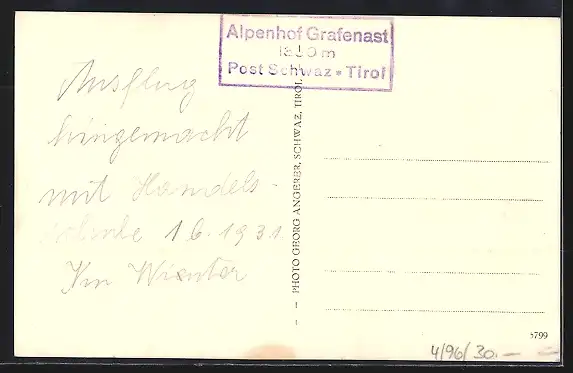 Alpenhof Grafenast
1330 m
Post Schwaz • Tirol
Ausflug
hingemacht
mit Handels-
schule 16.1931.
Im Wienter
PHOTO GEORG ANGERER, SCHWAZ, TIROL
5799
4/96/30.-